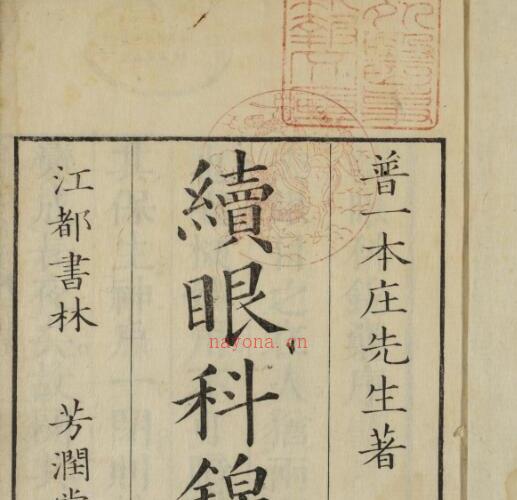 普一本庄先生著
續眼科錦
江都書林 芳潤堂
nayona.cn